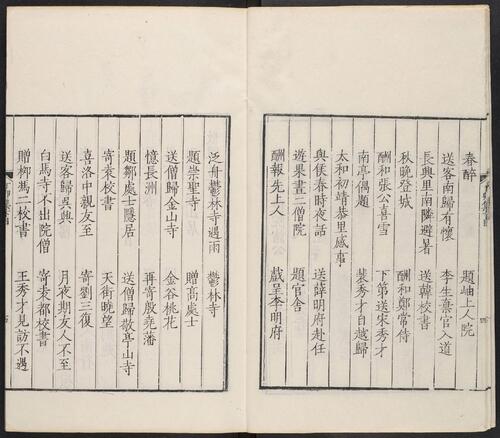 春醉 題岫上人院
送客南歸有懷 李生棄官入道
長興里南隣避暑 送韓校書
秋晚登城 酬和鄭常侍
酬和張公喜雪 下第送宋秀才
南亭偶題 裴秀才自越歸
太和初靖恭里感事
與侯春時夜話 送薛明府赴任
遊果晝二僧院 題官舍
酬報先上人 戲呈李明府
泛舟鬱林寺遇雨 鬱林寺
題崇聖寺 贈高處士
送僧歸金山寺 金谷桃花
憶長洲 再寄殷堯潘
題鄒處士隱居 送僧歸敬亭山寺
寄袁校書 天街晚望
喜洛中親友至 寄劉三復
送客歸吳興 月夜期友人不至
白馬寺不出院僧 寄袁都校書
贈柳馮二校書 王秀才見訪不遇